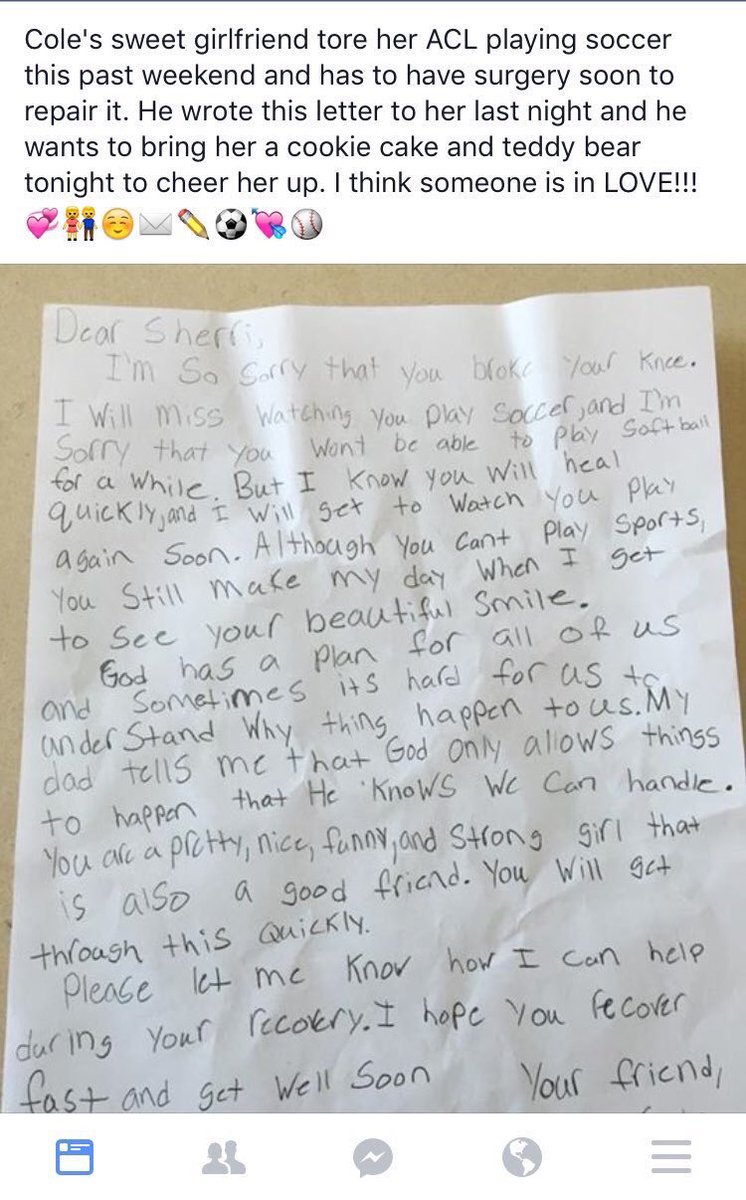 Cole's sweet girlfriend tore her ACL playing soccer
this past weekend and has to have surgery soon to
repair it. He wrote this letter to her last night and he
wants to bring her a cookie cake and teddy bear
tonight to cheer her up. I think someone is in LOVE!!!
💞👫☺️✉️✏️⚽💘⚾
Dear Sherri,
I'm So Sorry that you broke your Knee.
I Will miss Watching you play Soccer, and I'm
Sorry that you Wont be able to play Softball
for a While. But I Know you Will heal
quickly, and I Will get to Watch you play
again Soon. Although you Cant play Sports,
You Still make my day When I get
to See your beautiful Smile.
God has a plan for all of us
and Sometimes its hard for us to
understand Why thing happen to us. My
dad tells me that God only allows things
to happen that He KnowS We Can handle.
You are a pretty, nice, funny, and Strong girl that
is also a good friend. You Will get
through this Quickly.
Please let me Know how I Can help
during Your recovery. I hope You recover
fast and get Well Soon Your friend,